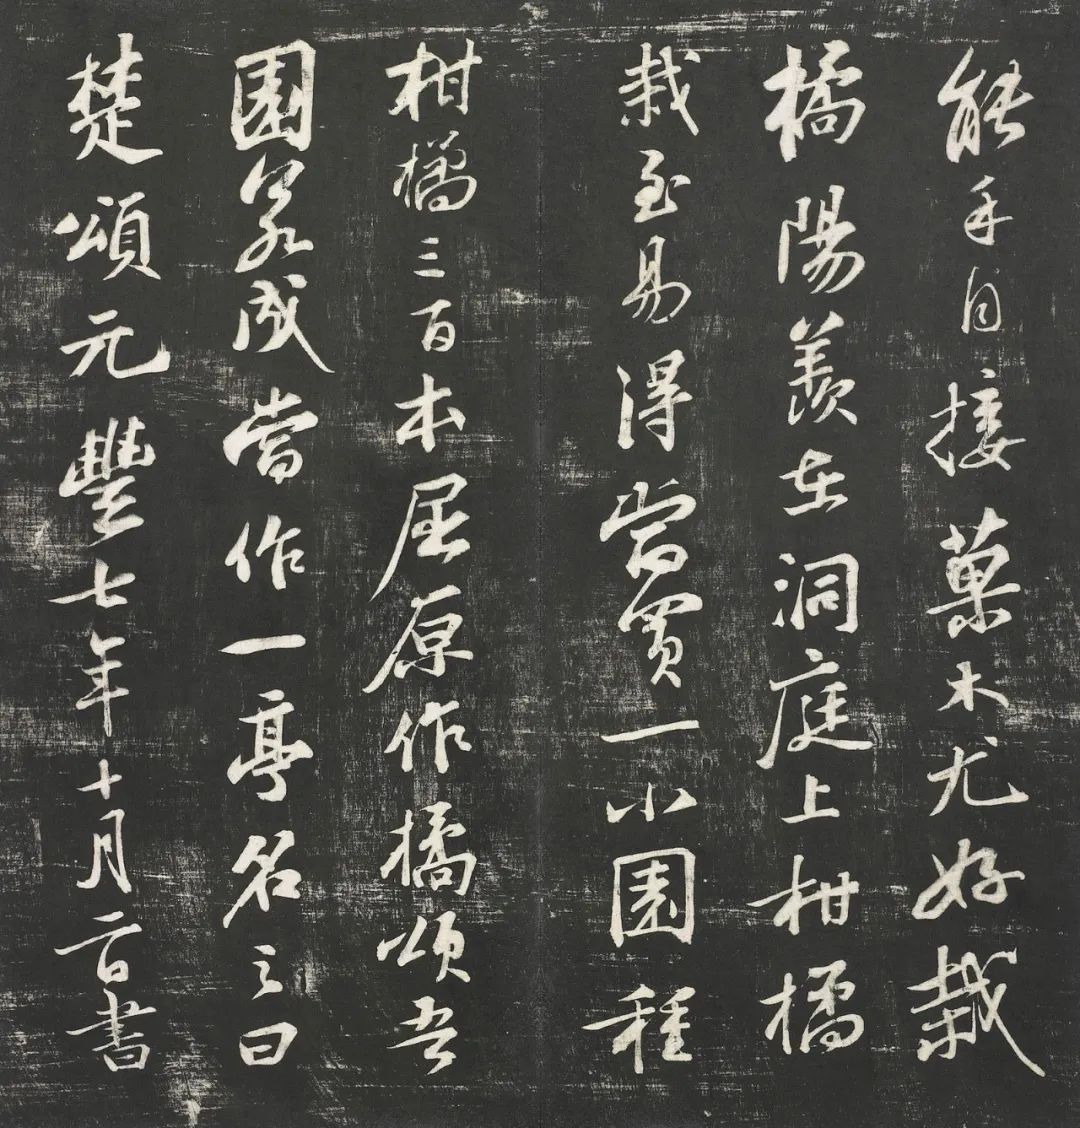 能手自接菓木尤好栽
橘陽羨在洞庭上柑橘
栽至易得當買一小園種
柑橘三百本屈原作橘頌吾
園成當作一亭名之曰
楚頌元豐七年十月二日書